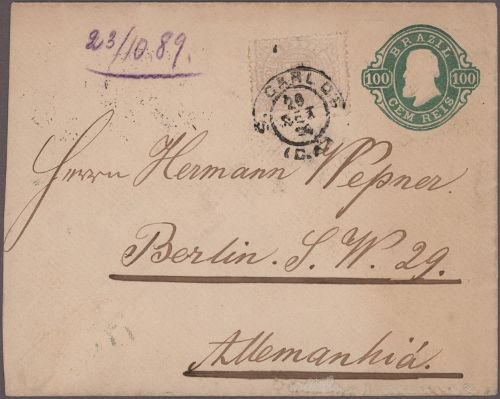 23/10.89.
BRAZIL
100 100
CEM REIS
S. CARLOS
26
SET
Herrn Hermann Wepner.
Berlin. S. W. 29.
Allemanhiá.